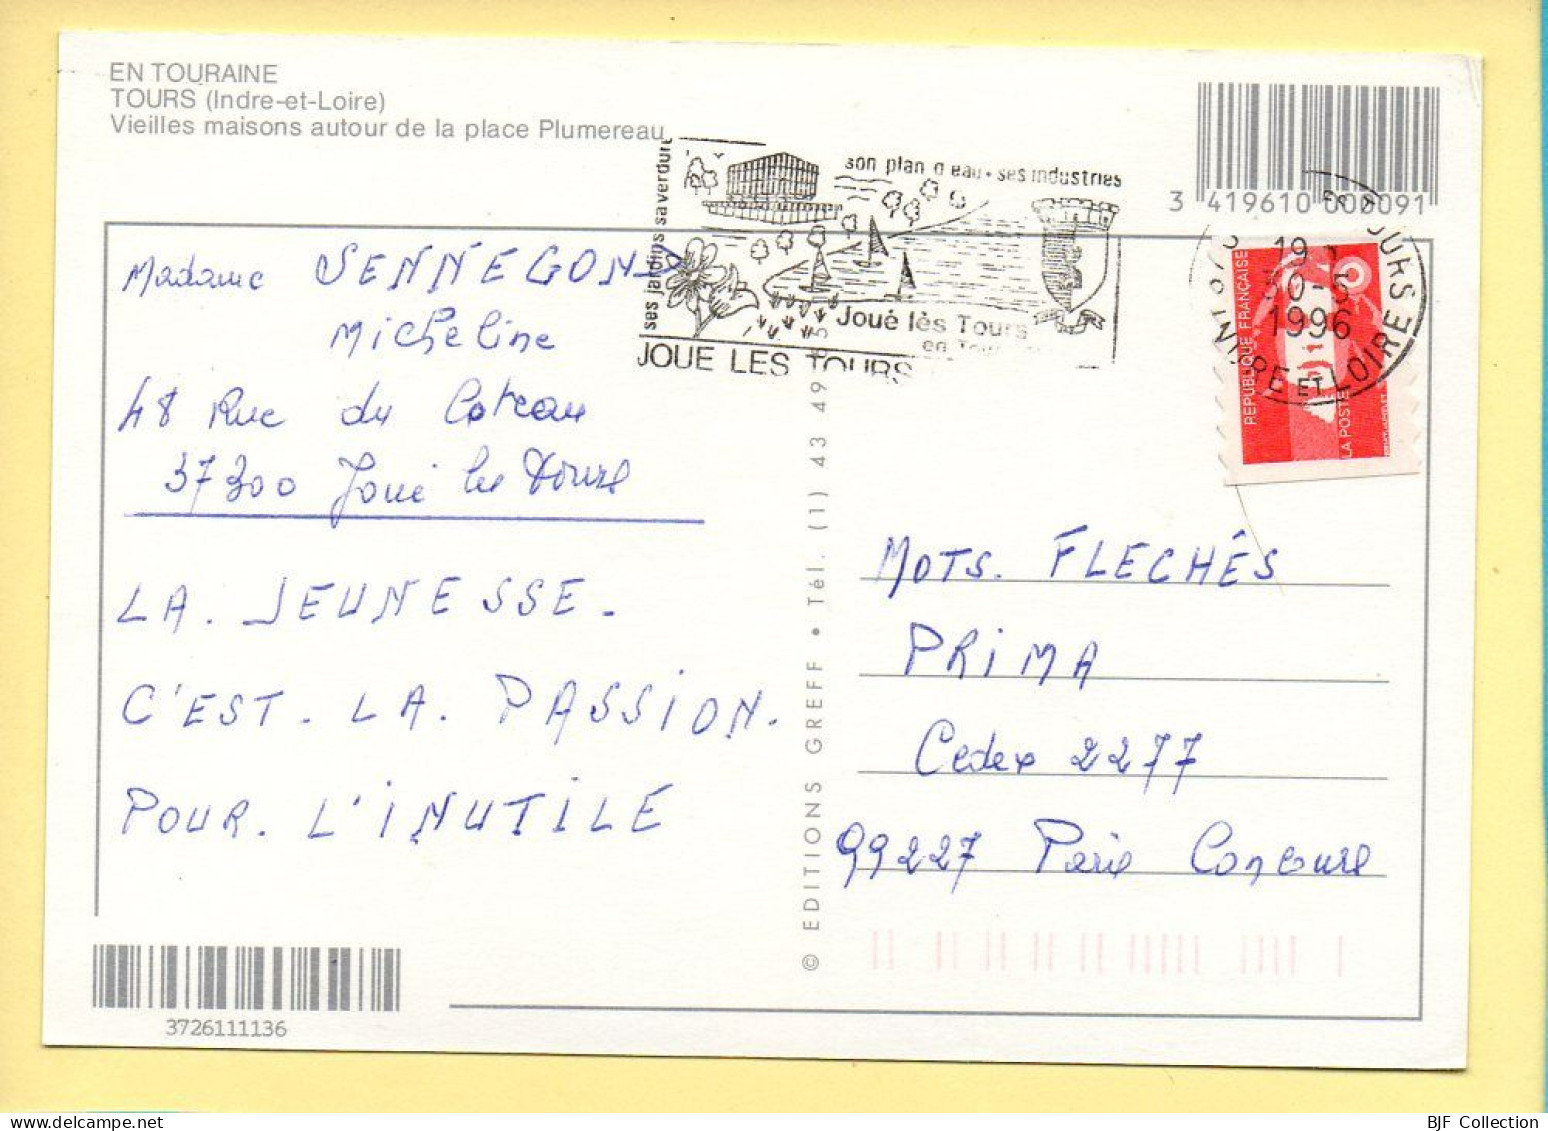 EN TOURAINE
TOURS (Indre-et-Loire)
Vieilles maisons autour de la place Plumereau
ses jardins sa verdure
son plan d'eau • ses industries
Joué lès Tours
en
JOUE LES TOURS
3 419610 000091
TOURS
19
30-5
1996
INDRE ET LOIRE
REPUBLIQUE FRANÇAISE
LA POSTE
Madame SENNEGOND
Micheline
48 Rue du Coteau
37300 Joué les Tours
LA. JEUNESSE.
C'EST. LA. PASSION.
POUR. L'INUTILE
© EDITIONS GREFF • Tél. (1) 43 49
MOTS. FLECHÉS
PRIMA
Cedex 2277
99227 Paris Concours
3726111136
BJF Collection